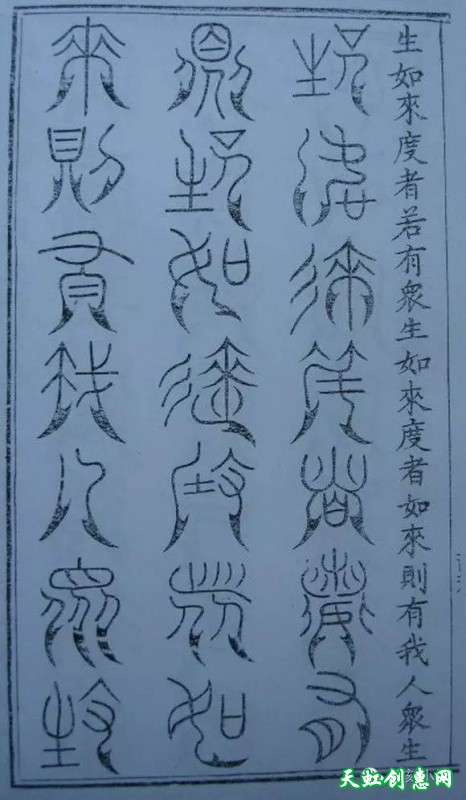 生如來度者若有衆生如來度者如來則有我人衆生
生如來度者若有
衆生如來度者如
來則有我人衆生
天虹创惠网